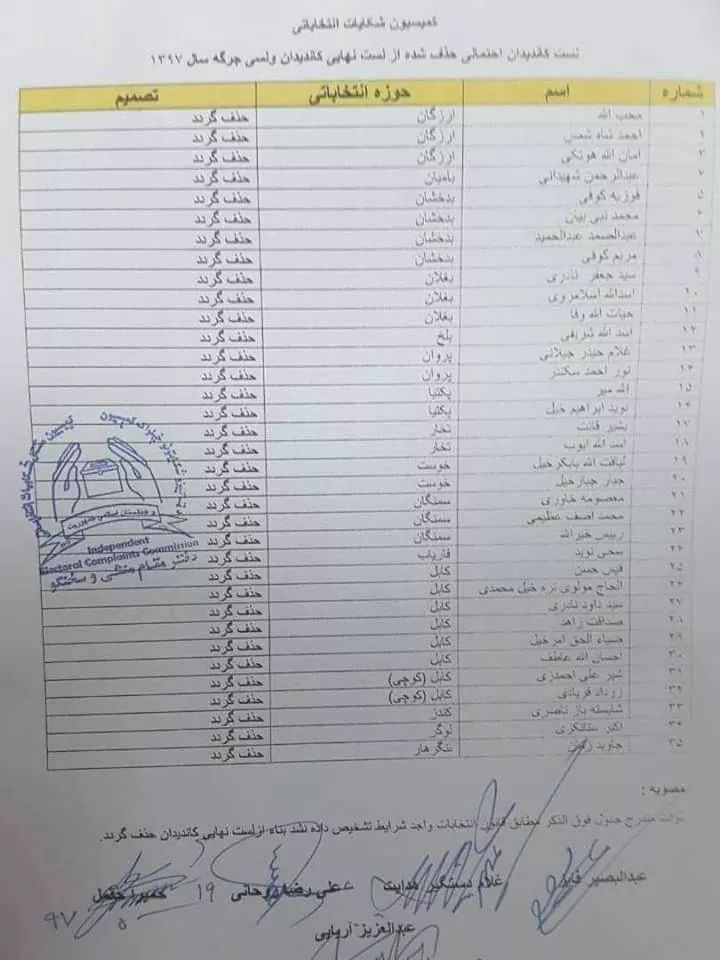 کمیسیون شکایات انتخاباتی
لست کاندیدان احتمالی حذف شده از لست نهایی کاندیدان ولسی جرگه سال ۱۳۹۷
شماره اسم حوزه انتخاباتی تصمیم
۱ محب الله ارزگان حذف گردد
۲ احمد شاه شمس ارزگان حذف گردد
۳ امان الله هوتکی ارزگان حذف گردد
۴ عبدالرحمن شهیدانی بامیان حذف گردد
۵ فوزیه کوفی بدخشان حذف گردد
۶ محمد نبی بیان بدخشان حذف گردد
۷ عبدالصمد عبدالحمید بدخشان حذف گردد
۸ مریم کوفی بدخشان حذف گردد
۹ سید جعفر نادری بغلان حذف گردد
۱۰ اسدالله اسلامزوی بغلان حذف گردد
۱۱ حیات الله وفا بغلان حذف گردد
۱۲ اسد الله شریفی بلخ حذف گردد
۱۳ غلام حیدر جیلانی پروان حذف گردد
۱۴ نور احمد سکندر پروان حذف گردد
۱۵ الله میر پکتیا حذف گردد
۱۶ نوید ابراهیم خیل پکتیا حذف گردد
۱۷ بشیر قانت تخار حذف گردد
۱۸ اسد الله ایوب تخار حذف گردد
۱۹ لیاقت الله بابکرخیل خوست حذف گردد
۲۰ جبار جبارخیل خوست حذف گردد
۲۱ معصومه خاوری سمنگان حذف گردد
۲۲ محمد اصف عظیمی سمنگان حذف گردد
۲۳ رییس خیرالله سمنگان حذف گردد
۲۴ سخی نوید فاریاب حذف گردد
۲۵ قیس حسن کابل حذف گردد
۲۶ الحاج مولوی تره خیل محمدی کابل حذف گردد
۲۷ سید داود نادری کابل حذف گردد
۲۸ صداقت زاهد کابل حذف گردد
۲۹ ضیاء الحق امرخیل کابل حذف گردد
۳۰ احسان الله عاطف کابل حذف گردد
۳۱ شیر علی احمدزی کابل (کوچی) حذف گردد
۳۲ زرداد فریادی کابل (کوچی) حذف گردد
۳۳ شایسته باز ناصری کندز حذف گردد
۳۴ اکبر ستانکزی لوگر حذف گردد
۳۵ جاوید ننگرهار حذف گردد
Independent
Electoral Complaints Commission
دفتر مقام منشی و سخنگو
مصوبه :
ذوات مندرج جدول فوق الذکر مطابق قانون انتخابات واجد شرایط تشخیص داده نشد بناء ازلست نهایی کاندیدان حذف گردد.
عبدالبصیر فایز غلام دستگیر هدایت علی رضا روحانی
عبدالعزیز آریایی